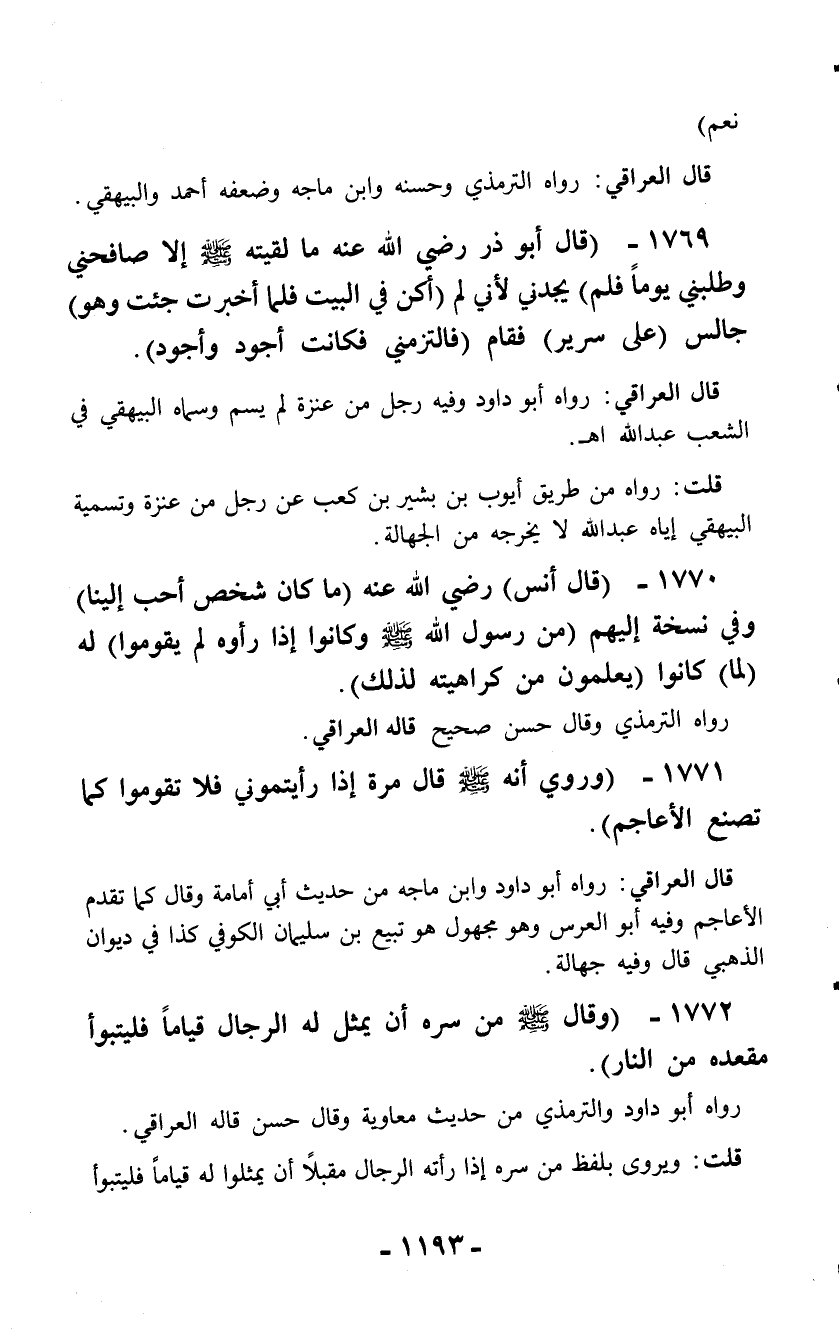 نعم)
قال العراقي: رواه الترمذي وحسنه وابن ماجه وضعفه أحمد والبيهقي.
١٧٦٩ - (قال أبو ذر رضي الله عنه ما لقيته ﷺ إلا صافحني
وطلبني يوماً فلم) يجدني لأني لم (أكن في البيت فلما أخبرت جئت وهو)
جالس (على سرير) فقام (فالتزمني فكانت أجود وأجود).
قال العراقي: رواه أبو داود وفيه رجل من عنزة لم يسم وسماه البيهقي في
الشعب عبدالله اهـ.
قلت: رواه من طريق أيوب بن بشير بن كعب عن رجل من عنزة وتسمية
البيهقي إياه عبدالله لا يخرجه من الجهالة.
١٧٧٠ - (قال أنس) رضي الله عنه (ما كان شخص أحب إلينا)
وفي نسخة إليهم (من رسول الله ﷺ وكانوا إذا رأوه لم يقوموا) له
(لما) كانوا (يعلمون من كراهيته لذلك).
رواه الترمذي وقال حسن صحيح قاله العراقي.
١٧٧١ - (وروي أنه ﷺ قال مرة إذا رأيتموني فلا تقوموا كما
تصنع الأعاجم).
قال العراقي: رواه أبو داود وابن ماجه من حديث أبي أمامة وقال كما تقدم
الأعاجم وفيه أبو العرس وهو مجهول هو تبيع بن سليمان الكوفي كذا في ديوان
الذهبي قال وفيه جهالة.
١٧٧٢ - (وقال ﷺ من سره أن يمثل له الرجال قياماً فليتبوأ
مقعده من النار).
رواه أبو داود والترمذي من حديث معاوية وقال حسن قاله العراقي.
قلت: ويروى بلفظ من سره إذا رأته الرجال مقبلاً أن يمثلوا له قياماً فليتبوأ
- ١١٩٣ -